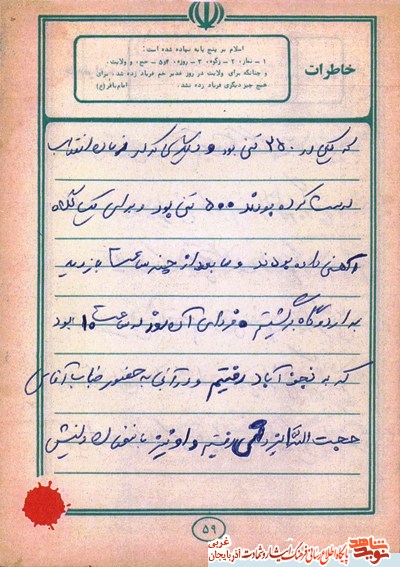 خاطرات
اسلام بر پنج پایه نهاده شده است:
۱ – نماز، ۲ – زکوة، ۳ – روزه، ۴و۵ – حج، و ولایت.
و چنانکه برای ولایت در روز غدیر خم فریاد زده شد، برای
هیچ چیز دیگری فریاد زده نشد. امام باقر (ع)
که یکی در ۲۵۰ تنی بود و دیگری که در فرمان انقلاب
درست کرده بودند ۵۰۰ تنی بود و برای یک
آهنی داده بودند و ما بعد از چند ساعت بازدید
به اردوگاه برگشتیم فردای آن روز در ساعت ۱۰ بود
که به نجف آباد رفتیم و در آنجا به حضور جناب آقای
حجت الله ایزدی رفتیم و او نیز با
۵۹
نوید شاهد
پایگاه اطلاع رسانی فرهنگ ایثار و شهادت آذربایجان غربی